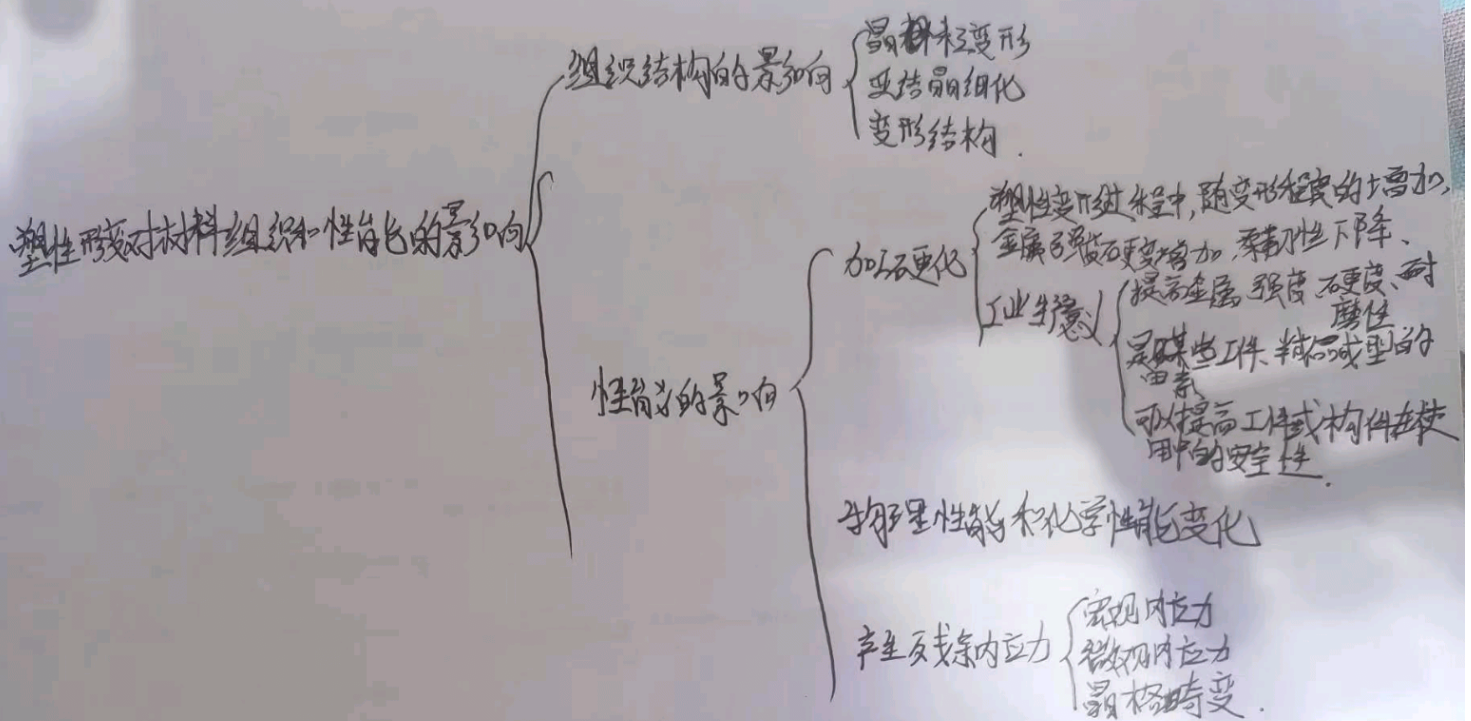 塑性形变对材料组织和性能的影响
组织结构的影响
晶粒变形
亚结晶细化
变形结构.
性能的影响
加工硬化
塑性变形过程中,随变形程度的增加,
金属强度硬度增加,柔韧性下降、
工业生产意义
提高金属强度、硬度、耐
磨性
是某些工件、半成品成型的
因素
可以提高工件或构件在使
用中的安全性.
物理性能和化学性能变化
产生残余内应力
宏观内应力
微观内应力
晶格畸变.